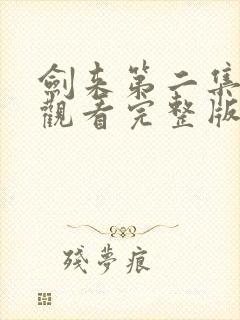 劍来第二集
觀看完整版
殘夢痕